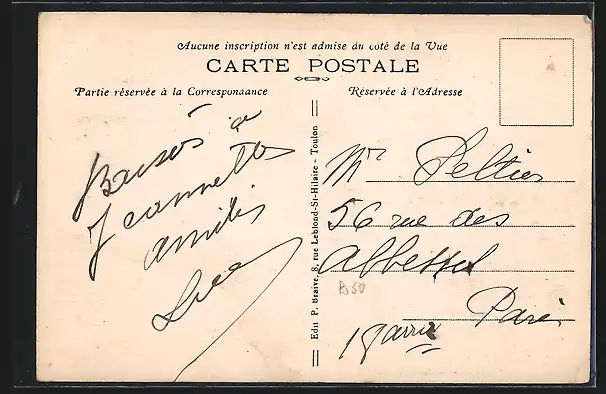 Aucune inscription n'est admise du côté de la Vue
CARTE POSTALE
Partie réservée à la Correspondance
Réservée à l'Adresse
Baisers a
Jeannette
amitiés
Edit P. Braive, 8, rue Leblond-St-Hilaire - Toulon
Mr Peltier
56 rue des
Abbesses
Paris